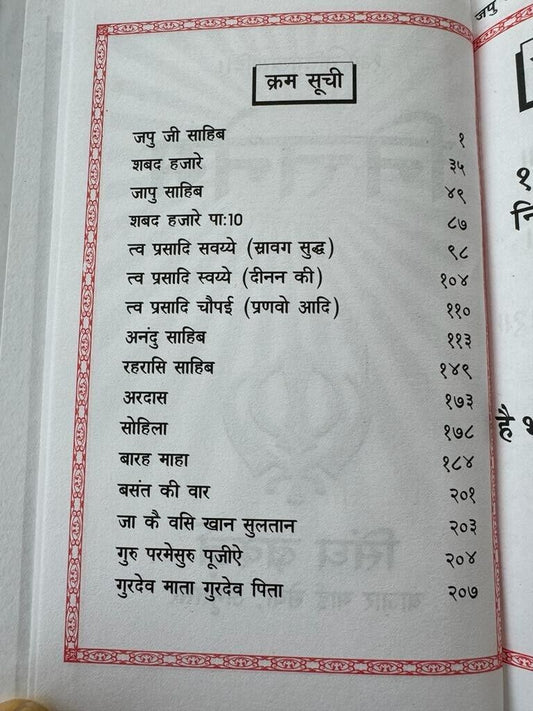 क्रम सूची
जपु जी साहिब १
शबद हजारे ३५
जापु साहिब ४९
शबद हजारे पा:10 ८७
त्व प्रसादि सवय्ये (स्रावग सुद्ध) ९८
त्व प्रसादि स्वय्ये (दीनन की) १०४
त्व प्रसादि चौपई (प्रणवो आदि) ११०
अनंदु साहिब ११३
रहरासि साहिब १४९
अरदास १७३
सोहिला १७८
बारह माहा १८४
बसंत की वार २०१
जा कै वसि खान सुलतान २०३
गुरु परमेसुरु पूजीऐ २०४
गुरदेव माता गुरदेव पिता २०७
जपु
१
नि
है